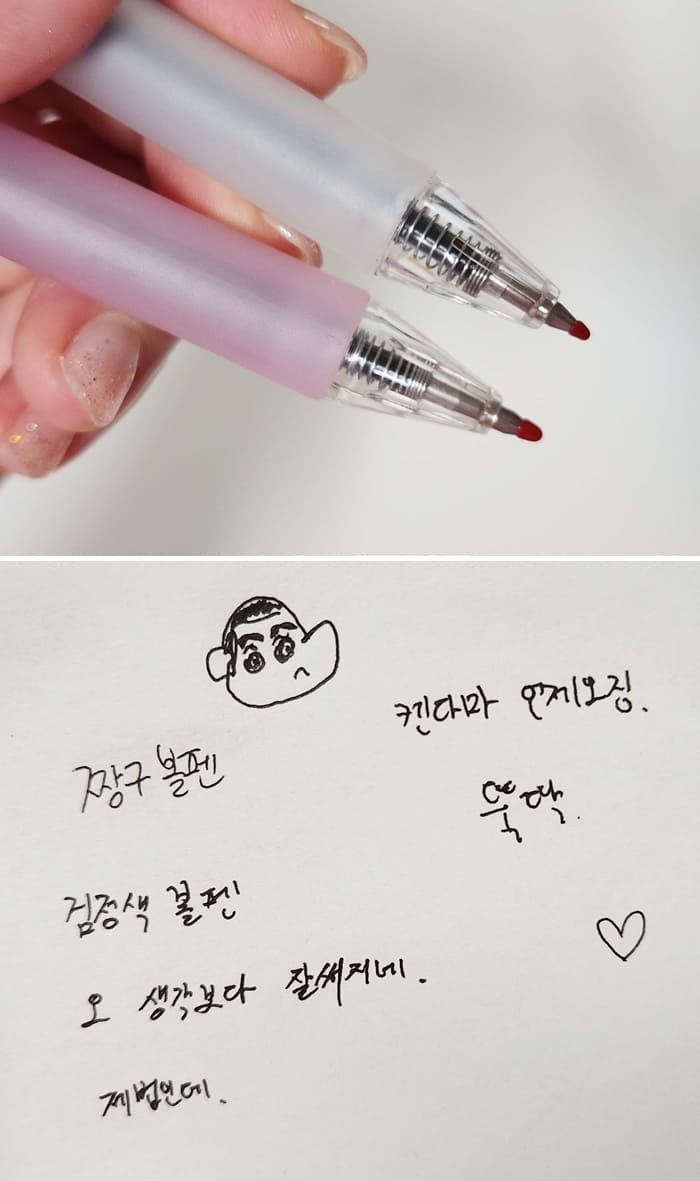 짱구볼펜
켄다마 언제오징.
뚝딱.
검정색 볼펜
오 생각보다 잘써지네.
제법인데.